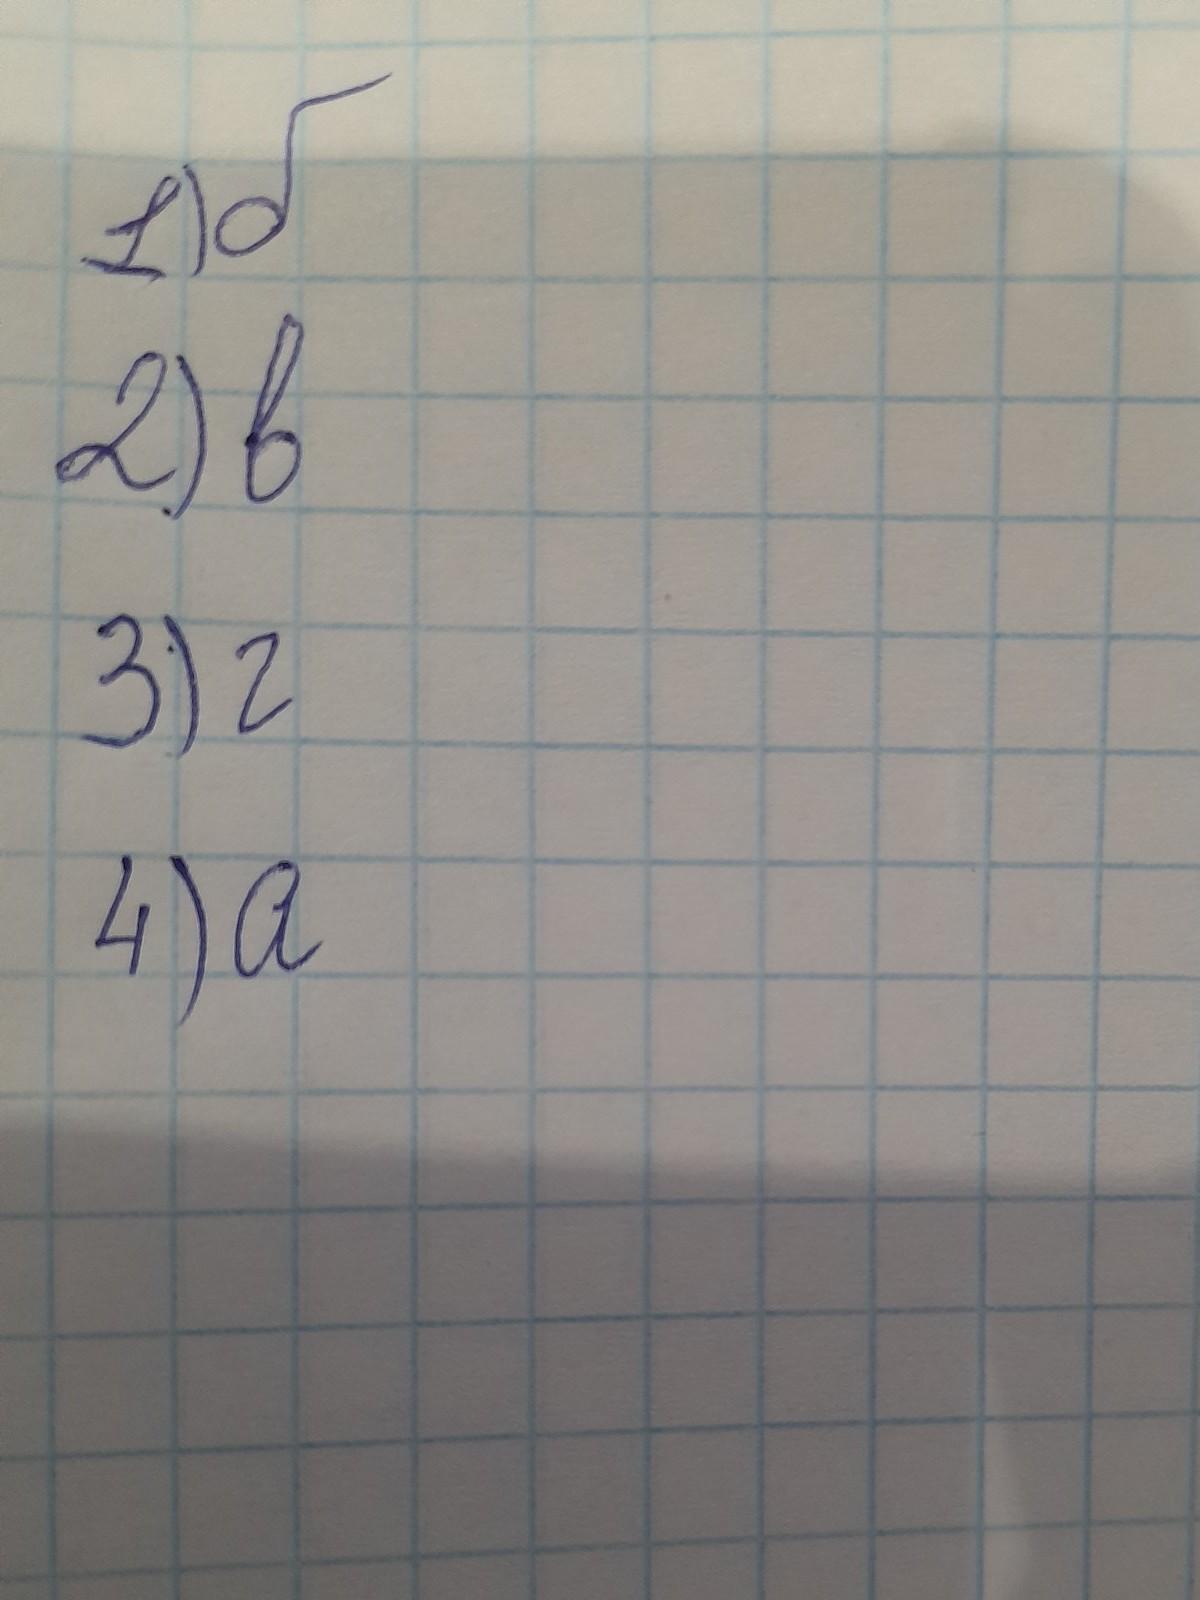 1) б
2) в
3) г
4) а